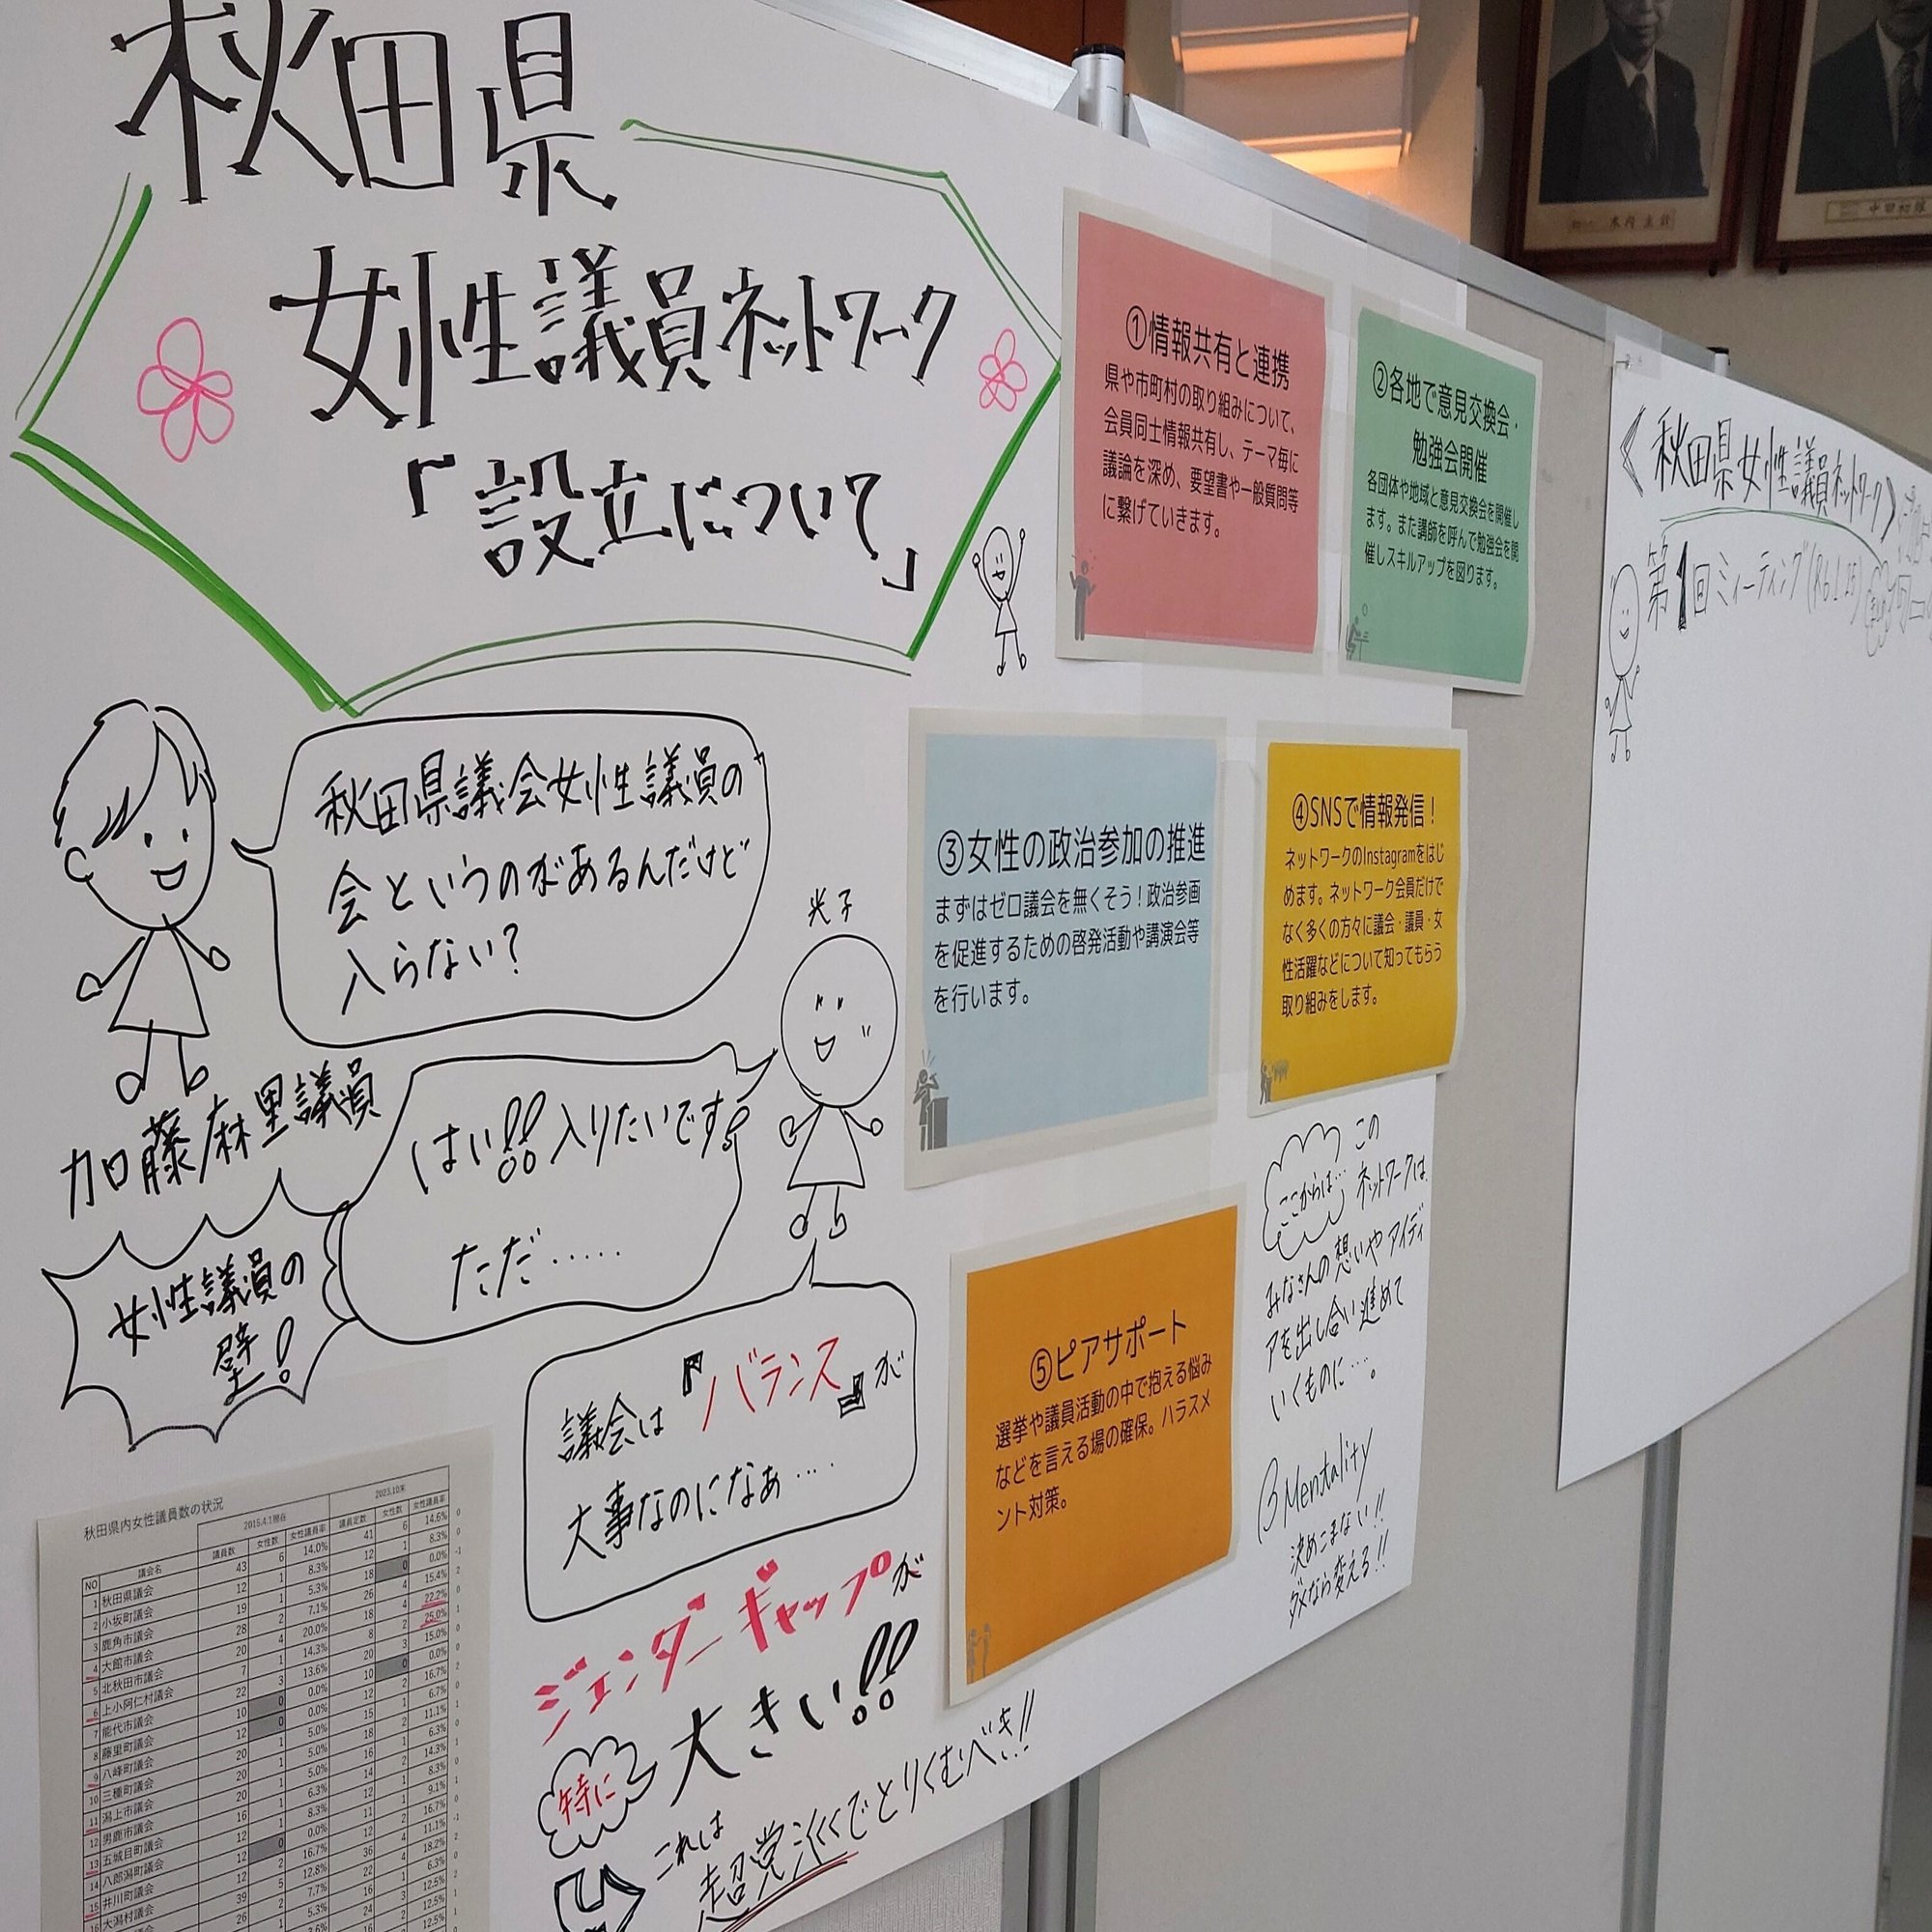 秋田県
女性議員ネットワーク
「設立について」
秋田県議会女性議員の
会というのがあるんだけど
入らない?
加藤麻里議員
光子
はい!!入りたいです!
ただ.....
女性議員の
壁!
議会は『バランス』が
大事なのになぁ....
ジェンダーギャップが
特に
大きい!!
これは
超党派でとりくむべき!!
①情報共有と連携
県や市町村の取り組みについて、
会員同士情報共有し、テーマ毎に
議論を深め、要望書や一般質問等
に繋げていきます。
②各地で意見交換会・
勉強会開催
各団体や地域と意見交換会を開催し
ます。また講師を呼んで勉強会を開
催しスキルアップを図ります。
③女性の政治参加の推進
まずはゼロ議会を無くそう！政治参画
を促進するための啓発活動や講演会等
を行います。
④SNSで情報発信！
ネットワークのInstagramをはじ
めます。ネットワーク会員だけで
なく多くの方々に議会・議員・女
性活躍などについて知ってもらう
取り組みをします。
⑤ピアサポート
選挙や議員活動の中で抱える悩み
などを言える場の確保。ハラスメ
ント対策。
ここからは…
この
ネットワークは
みなさんの想いやアイディ
アを出し合い進めて
いくものに….。
βMentality
決めこまない!!
ダメなら変える!!
《秋田県女性議員ネットワーク》
第1回ミーティング(R6.1.25)
秋田県内女性議員数の状況
2015.4.1現在
2023.10末
NO 議会名 議員数 女性数 女性議員率 議員定数 女性数 女性議員率
1 秋田県議会 43 6 14.0% 41 6 14.6%
2 小坂町議会 12 1 8.3% 12 1 8.3%
3 鹿角市議会 19 1 5.3% 18 0 0.0%
4 大館市議会 28 2 7.1% 26 4 15.4%
5 北秋田市議会 20 4 20.0% 18 4 22.2%
6 上小阿仁村議会 7 1 14.3% 8 2 25.0%
7 能代市議会 22 3 13.6% 20 3 15.0%
8 藤里町議会 10 0 0.0% 10 0 0.0%
9 八峰町議会 12 0 0.0% 12 2 16.7%
10 三種町議会 20 1 5.0% 15 1 6.7%
11 潟上市議会 20 1 5.0% 18 2 11.1%
12 男鹿市議会 20 1 5.0% 16 1 6.3%
13 五城目町議会 16 1 6.3% 14 2 14.3%
14 八郎潟町議会 12 1 8.3% 12 1 8.3%
15 井川町議会 12 0 0.0% 11 1 9.1%
大潟村議会 12 2 16.7% 12 2 16.7%